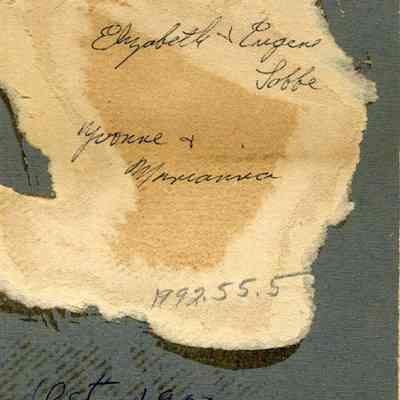 Elizabeth & Eugene
Sobbe
Yvonne &
Marianna
1992.55.5